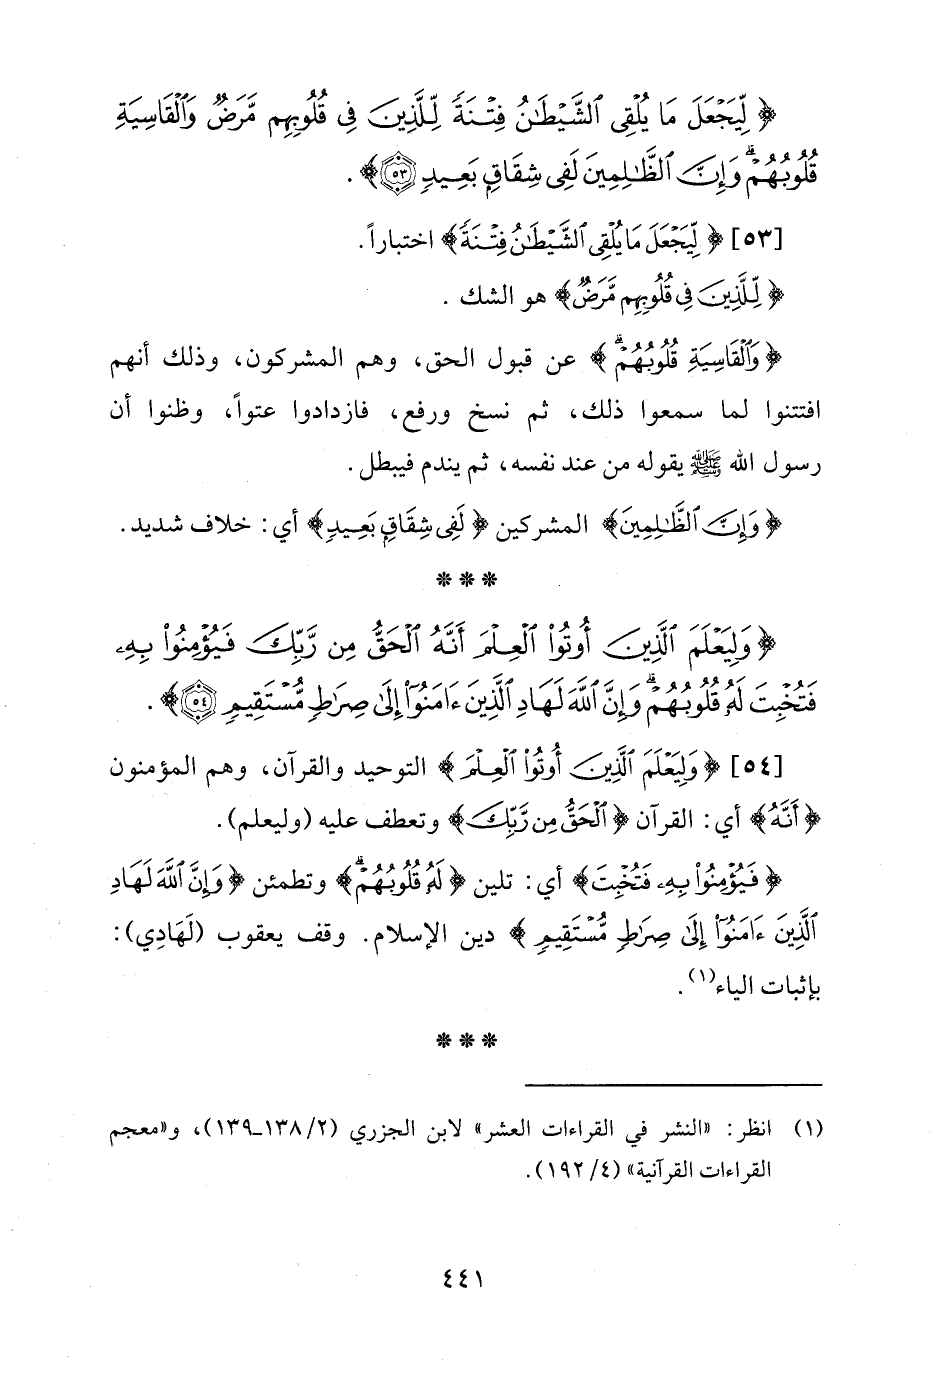 ﴿ لِّيَجْعَلَ مَا يُلْقِى ٱلشَّيْطَٰنُ فِتْنَةً لِّلَّذِينَ فِى قُلُوبِهِم مَّرَضٌ وَٱلْقَاسِيَةِ
قُلُوبُهُمْ ۗ وَإِنَّ ٱلظَّٰلِمِينَ لَفِى شِقَاقٍۭ بَعِيدٍ ٥٣ ﴾ .
[٥٣] ﴿ لِّيَجْعَلَ مَا يُلْقِى ٱلشَّيْطَٰنُ فِتْنَةً ﴾ اختباراً.
﴿ لِّلَّذِينَ فِى قُلُوبِهِم مَّرَضٌ ﴾ هو الشك .
﴿ وَٱلْقَاسِيَةِ قُلُوبُهُمْ ۗ ﴾ عن قبول الحق، وهم المشركون، وذلك أنهم
افتتنوا لما سمعوا ذلك، ثم نسخ ورفع، فازدادوا عتواً، وظنوا أن
رسول الله ﷺ يقوله من عند نفسه، ثم يندم فيبطل.
﴿ وَإِنَّ ٱلظَّٰلِمِينَ ﴾ المشركين ﴿ لَفِى شِقَاقٍۭ بَعِيدٍ ﴾ أي: خلاف شديد.
* * *
﴿ وَلِيَعْلَمَ ٱلَّذِينَ أُوتُوا۟ ٱلْعِلْمَ أَنَّهُ ٱلْحَقُّ مِن رَّبِّكَ فَيُؤْمِنُوا۟ بِهِۦ
فَتُخْبِتَ لَهُۥ قُلُوبُهُمْ ۗ وَإِنَّ ٱللَّهَ لَهَادِ ٱلَّذِينَ ءَامَنُوٓا۟ إِلَىٰ صِرَٰطٍ مُّسْتَقِيمٍ ٥٤ ﴾ .
[٥٤] ﴿ وَلِيَعْلَمَ ٱلَّذِينَ أُوتُوا۟ ٱلْعِلْمَ ﴾ التوحيد والقرآن، وهم المؤمنون
﴿ أَنَّهُ ﴾ أي: القرآن ﴿ ٱلْحَقُّ مِن رَّبِّكَ ﴾ وتعطف عليه (وليعلم).
﴿ فَيُؤْمِنُوا۟ بِهِۦ فَتُخْبِتَ ﴾ أي: تلين ﴿ لَهُۥ قُلُوبُهُمْ ۗ ﴾ وتطمئن ﴿ وَإِنَّ ٱللَّهَ لَهَادِ
ٱلَّذِينَ ءَامَنُوٓا۟ إِلَىٰ صِرَٰطٍ مُّسْتَقِيمٍ ﴾ دين الإسلام. وقف يعقوب (لَهَادِي):
بإثبات الياء(١).
* * *
(١) انظر: «النشر في القراءات العشر» لابن الجزري (٢/ ١٣٨ـ١٣٩)، و«معجم
القراءات القرآنية» (٤/ ١٩٢).
٤٤١